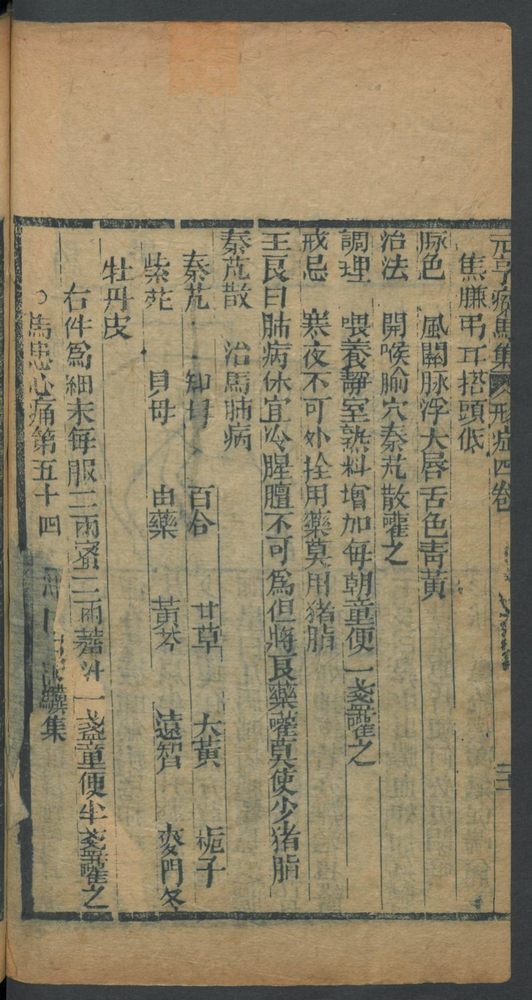 元亨療馬集 形症四卷 二十
焦賺弔耳搭頭低
脉色 風關脉浮大唇舌色靑黃
治法 開喉腧穴秦艽散嚾之
調理 喂養靜室熟料增加每朝童便一盞嚾之
戒忌 寒夜不可外拴用藥莫用猪脂
王良曰肺病休宜冷腥膻不可爲但將良藥嚾莫使少猪脂
秦艽散 治馬肺病
秦艽 知母 百合 甘草 大黃 梔子
紫菀 貝母 由藥 黃芩 遠智 麥門冬
牡丹皮
右件爲細末每服二兩蜜二兩 一盞童便半盞嚾之
馬患心痛第五十四 集